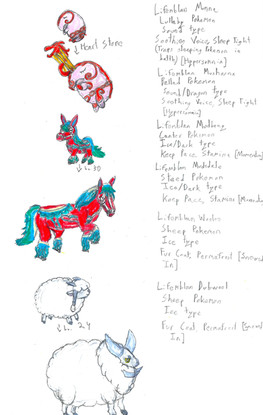 Lifemblan Munna
Lullaby Pokemon
Sound type
Soothing Voice, Sleep Tight
(Traps sleeping Pokemon in
battle) [Hypersomnia]
↓ Moon Stone
Lifemblan Musharna
Ballad Pokemon
Sound/Dragon type
Soothing Voice, Sleep Tight
[Hypersomnia]
Lifemblan Mudbray
Canter Pokemon
Ice/Dark type
Keep Pace, Stamina
↓ 30
Lifemblan Mudsdale
Steed Pokemon
Ice/Dark type
Keep Pace, Stamina
Lifemblan Wooloo
Sheep Pokemon
Ice type
Fur Coat, Permafrost [Snowed
In]
24
Lifemblan Dubwool
Sheep Pokemon
Ice type
Fur Coat, Permafrost [Snowed
In]